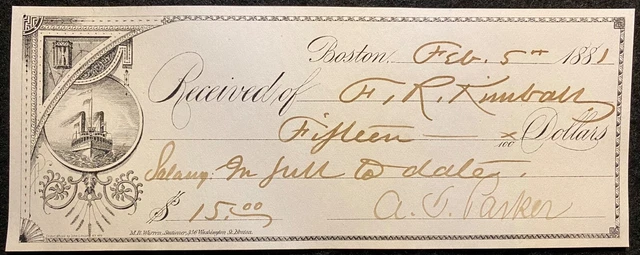 Boston, Feb. 5th 1881
Received of F. R. Kimball
Fifteen — x/100 Dollars
Salary In full to date.
$ 15.00 A. T. Parker
M.R. Warren, Stationer, 336 Washington St. Boston.